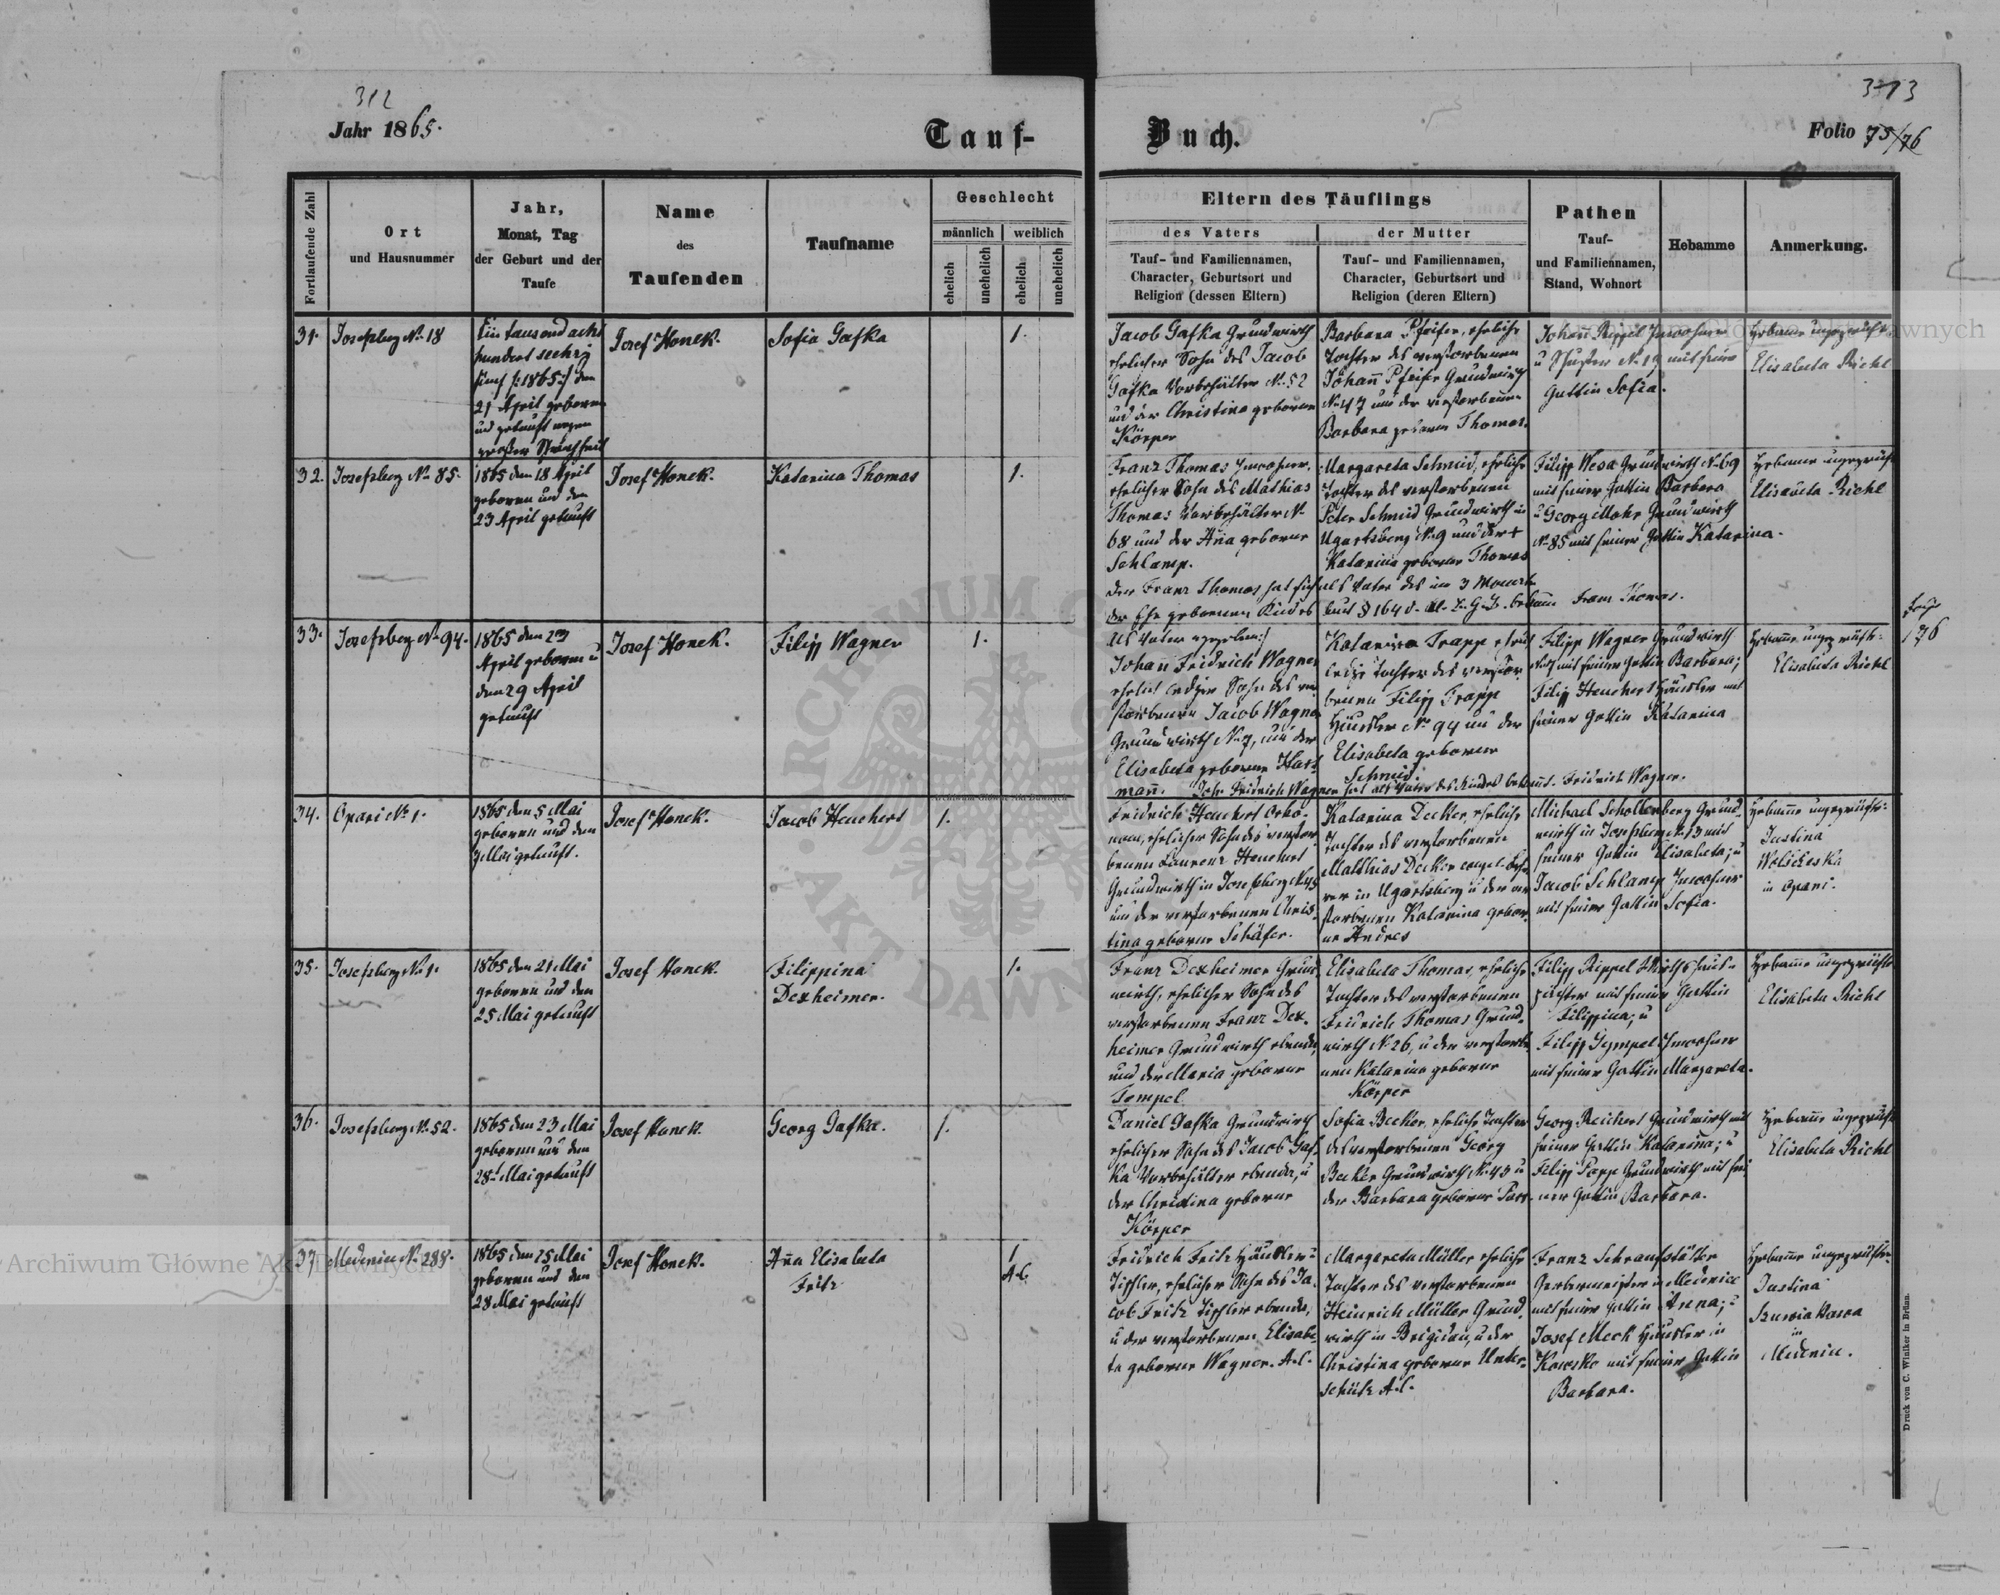 312
Jahr 1865.
Tauf-
Buch.
3713
Folio 75/76
Fortlaufende Zahl
Ort
und Hausnummer
Jahr,
Monat, Tag
der Geburt und der
Taufe
Name
des
Taufenden
Taufname
Geschlecht
männlich
weiblich
ehelich
unehelich
ehelich
unehelich
Eltern des Täuflings
des Vaters
Tauf- und Familiennamen,
Character, Geburtsort und
Religion (dessen Eltern)
der Mutter
Tauf- und Familiennamen,
Character, Geburtsort und
Religion (deren Eltern)
Pathen
Tauf-
und Familiennamen,
Stand, Wohnort
Hebamme
Anmerkung.
31.
Josefsberg No 18
Ein tausend acht
hundert sechzig
fünf /:1865:/ den
21 April geboren
und getauft wegen
großer Schwachheit
Josef Honek.
Sofia Gafka
1.
Jacob Gafka Grundwirth
ehelicher Sohn des Jacob
Gafka Vorbehälter No 52
und der Christina geborene
Körper
Barbara Pfeifer, eheliche
Tochter des verstorbenen
Johann Pfeifer Grundwirth
No 47 und der verstorbenen
Barbara geborene Thomas.
Johann Rippel Inwohner
u Schuster No 17 mit seiner
Gattin Sofia.
Hebamme ungeprüfte
Elisabeta Richl
32.
Josefsberg No 85.
1865 den 18 April
geboren und den
23 April getauft
Josef Honek.
Katarina Thomas
1.
Franz Thomas Inwohner,
ehelicher Sohn des Mathias
Thomas Vorbehälter No
68 und der Anna geborne
Schlamp.
Margareta Schmid, eheliche
Tochter des verstorbenen
Peter Schmid Grundwirth in
Ugartsberg No 9 und der +
Katarina geborner Thomas
Filipp Wesa Grundwirth No 69
mit seiner Gattin Barbara
u Georg Mohr Grundwirth
No 85 mit seiner Gattin Katarina.
Hebamme ungeprüfte
Elisabeta Richl
der Franz Thomas, hat sich als Vater des im 3 Monate
der Ehe geborenen Kindes laut § 164 d. A. b. G. B. bekannt Franz Thomas.
Folio
176
33.
Josefsberg No 94.
1865 den 23
April geboren u
den 29 April
getauft
Josef Honek.
Filipp Wagner
1.
als Vater angegeben:/
Johann Fridrich Wagner
ehelich lediger Sohn des ver
storbenen Jacob Wagner
Grundwirth No 7, und der
Elisabeta geborene Hart
mann.
Katarina Trapp ehelich
ledige Tochter des verstor
benen Filipp Trapp
Häusler No 94 und der
Elisabeta geborne
Schmid.
Filipp Wagner Grundwirth
No 7 mit seiner Gattin Barbara;
Filipp Heuchert Häusler mit
seiner Gattin Katarina
Hebamme ungeprüfte:
Elisabeta Richl
Johann Fridrich Wagner hat als Vater des Kindes bekannt. Fridrich Wagner.
34.
Opari No 1.
1865 den 5 Mai
geboren und den
7 Mai getauft.
Josef Honek.
Jacob Heuchert
1.
Fridrich Heuchert Oeko-
nom, ehelicher Sohn des verstor
benen Laurenz Heuchert
Grundwirth in Josefsberg No 48
und der verstorbenen Chris-
tina geborne Schäfer.
Katarina Decker, eheliche
Tochter des verstorbenen
Matthias Decker evgel. Leh-
rer in Ugartsberg u der ver
storbenen Katarina gebor-
ne Andres
Michael Schollenberg Grund-
wirth in Josefsberg No 13 mit
seiner Gattin Elisabeta; u
Jacob Schlamp Inwohner
mit seiner Gattin Sofia.
Hebamme ungeprüfte:
Justina
Woliczeska
in Opari.
35.
Josefsberg No 1.
1865 den 21 Mai
geboren und den
25 Mai getauft
Josef Honek.
Filippina
Dexheimer.
1.
Franz Dexheimer Grund
wirth, ehelicher Sohn des
verstorbenen Franz Dex-
heimer Grundwirth ebenda,
und der Maria geborne
Tempel
Elisabeta Thomas, eheliche
Tochter des verstorbenen
Fridrich Thomas Grund-
wirth No 26, u der verstorbe
nen Katarina geborne
Körper
Filipp Rippel Wirthshaus-
pächter mit seiner Gattin
Filippina; u
Filipp Tempel Inwohner
mit seiner Gattin Margareta.
Hebamme ungeprüfte
Elisabeta Richl
36.
Josefsberg No 52.
1865 den 23 Mai
geboren und den
28 Mai getauft
Josef Honek.
Georg Gafka.
1.
Daniel Gafka Grundwirth
ehelicher Sohn des Jacob Gaf-
ka Vorbehälter ebenda, u
der Christina geborne
Körper
Sofia Becker, eheliche Tochter
des verstorbenen Georg
Becker Grundwirth No 43 u
der Barbara geborner
Georg Reichert Grundwirth mit
seiner Gattin Katarina; u
Filipp Popp Grundwirth mit sei
ner Gattin Barbara.
Hebamme ungeprüfte
Elisabeta Richl
37
Medenice No 288.
1865 den 25 Mai
geboren und den
28 Mai getauft
Josef Honek.
Anna Elisabeta
Fritz
1
A.C.
Fridrich Fritz Häusler u
Tischler, ehelicher Sohn des Ja-
cob Fritz Tischler ebenda,
u der verstorbenen Elisabe-
ta geborner Wagner. A.C.
Margareta Müller eheliche
Tochter des verstorbenen
Heinrich Müller Grund-
wirth in Brigidau, u der
Christina geborner Unter-
schütz A.C.
Franz Schraufstätter
Gerbermeister in Medenice
mit seiner Gattin Anna; u
Josef Meck Häusler in
mit seiner Gattin
Barbara.
Hebamme ungeprüfte
Justina
in
Medenice.
Druck von C. Winiker in Brünn.
Archiwum Główne Akt Dawnych
Archiwum Główne Akt Dawnych
Archiwum Główne Akt Dawnych